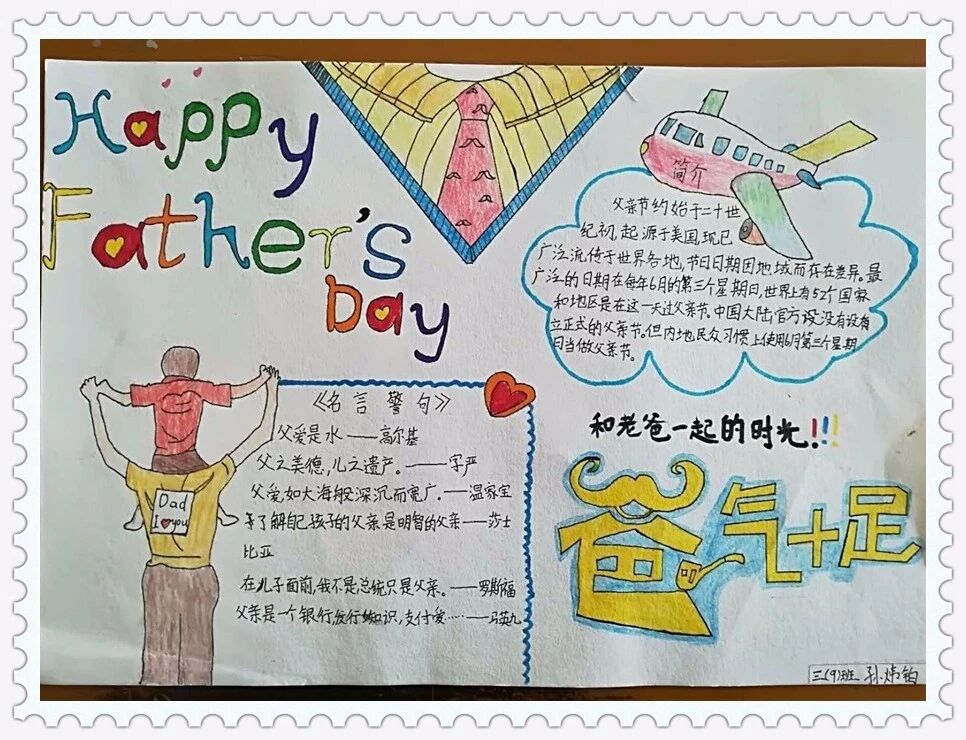 Happy
Father's
Day
简介
父亲节约始于二十世
纪初,起源于美国,现已
广泛流传于世界各地,节日日期因地域而存在差异。最
广泛的日期在每年6月的第三个星期日,世界上有52个国家
和地区是在这一天过父亲节。中国大陆官方没有设
立正式的父亲节。但内地民众习惯上使用6月第三个星期
日当做父亲节。
《名言警句》
父爱是水——高尔基
父之美德,儿之遗产。——字严
父爱,如大海般深沉而宽广。——温家宝
了解自己孩子的父亲是明智的父亲——莎士
比亚
在儿子面前,我不是总统只是父亲。——罗斯福
父亲是一个银行发行知识,支付爱……——马英九
Dad
I you
和老爸一起的时光!!!
爸气十足
三(9)班 孙炜铂